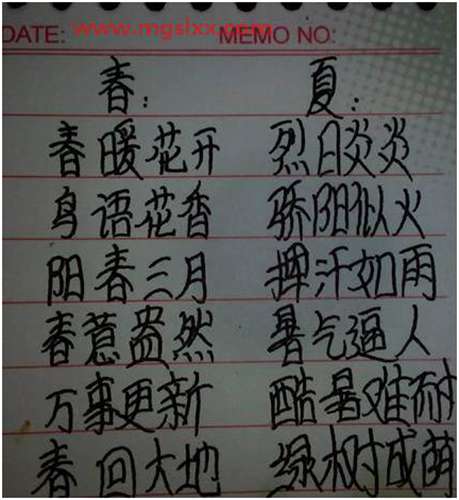 DATE: www.mgslxx.com MEMO NO:
春: 夏:
春暖花开 烈日炎炎
鸟语花香 骄阳似火
阳春三月 挥汗如雨
春意盎然 暑气逼人
万事更新 酷暑难耐
春回大地 绿树成荫